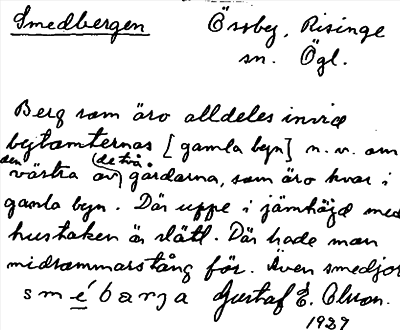 Smedbergen
Örsby, Risinge
sn. Ögl.
Berg som äro alldeles invid
bytomternas [gamla byn] n.v. om
den västra av (de två) gårdarna, som äro kvar i
gamla byn. Där uppe i jämhöjd med
hustaken är slätt. Där hade man
midsommarstång för. Även smedjor.
smébarja Gustaf E. Olsson.
1927